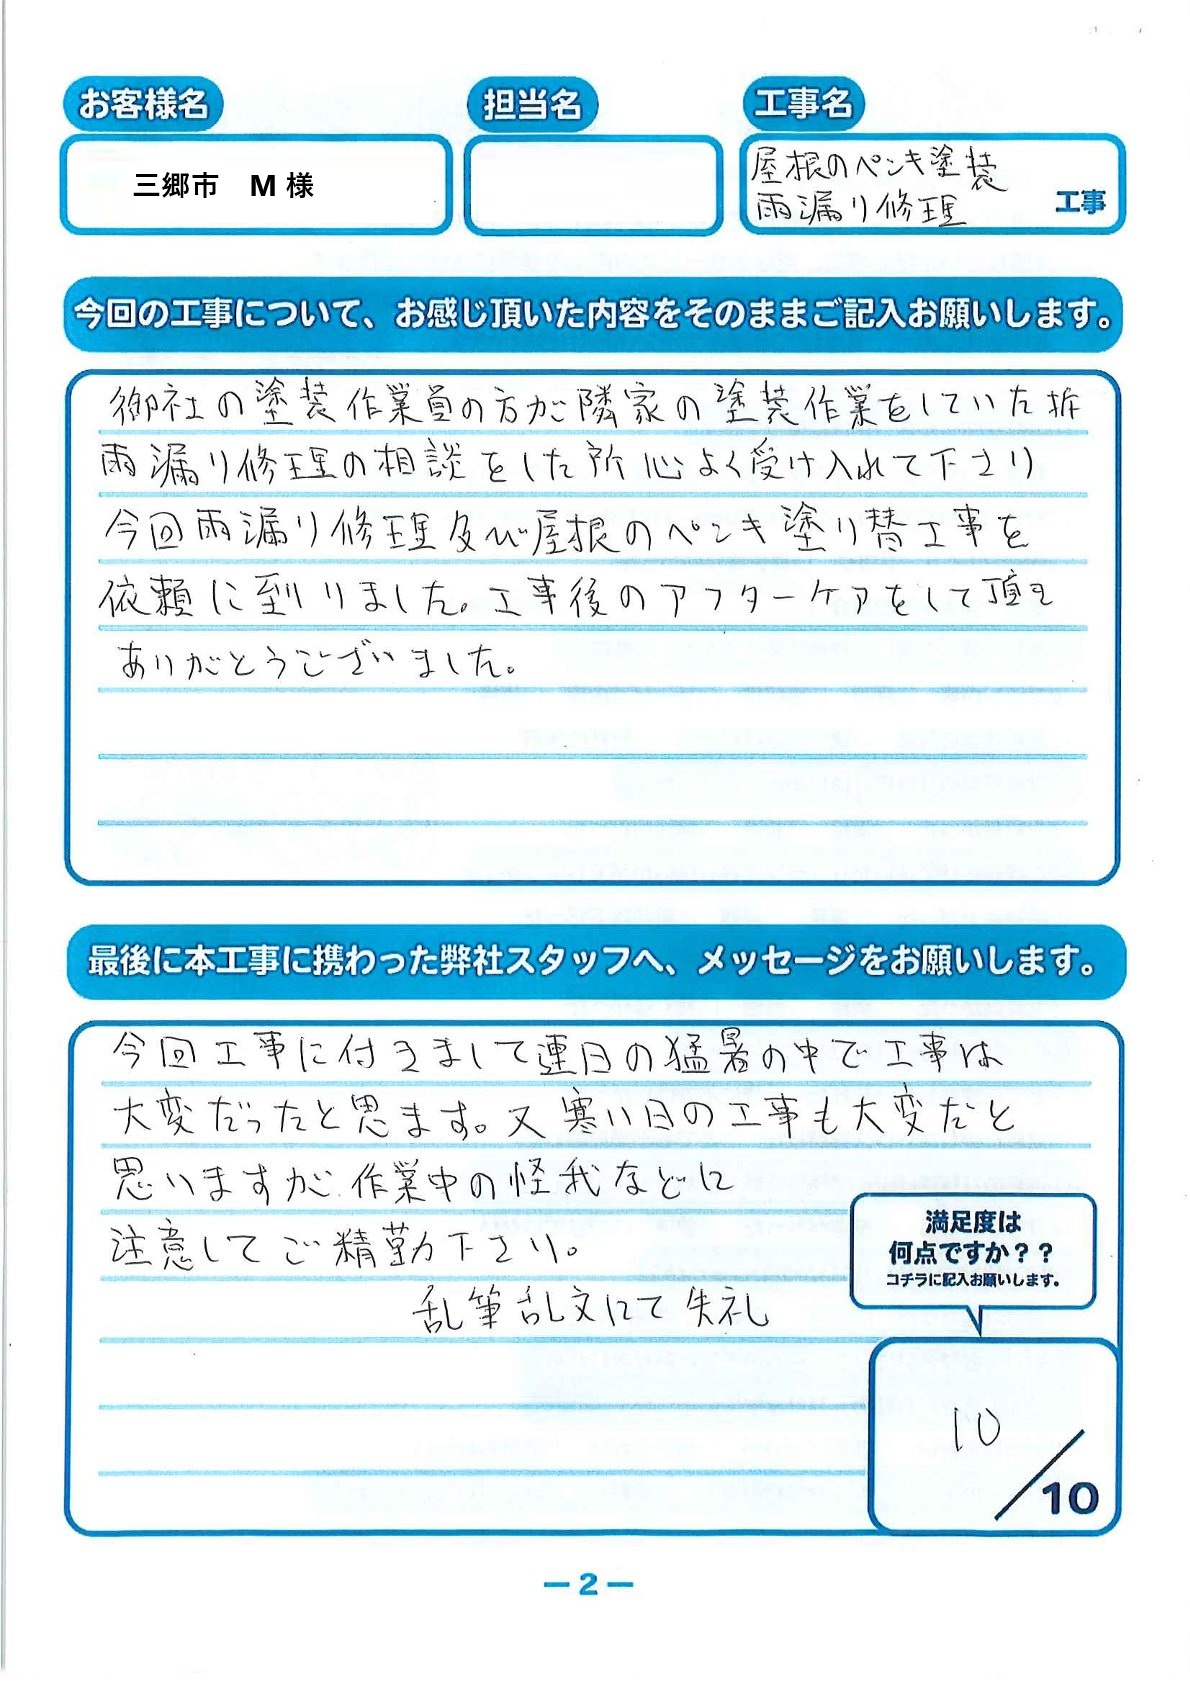 お客様名
担当名
工事名
三郷市 M 様
屋根のペンキ塗装
雨漏り修理
工事
今回の工事について、お感じ頂いた内容をそのままご記入お願いします。
御社の塗装作業員の方が隣家の塗装作業をしていた折
雨漏り修理の相談をした所心よく受け入れて下さり
今回雨漏り修理及び屋根のペンキ塗り替工事を
依頼に到りました。工事後のアフターケアをして頂き
ありがとうございました。
最後に本工事に携わった弊社スタッフへ、メッセージをお願いします。
今回工事に付きまして連日の猛暑の中で工事は
大変だったと思ます。又寒い日の工事も大変だと
思いますが作業中の怪我などに
注意してご精勤下さり。
乱筆乱文にて失礼
満足度は
何点ですか？？
コチラに記入お願いします。
10
/10
— 2 —